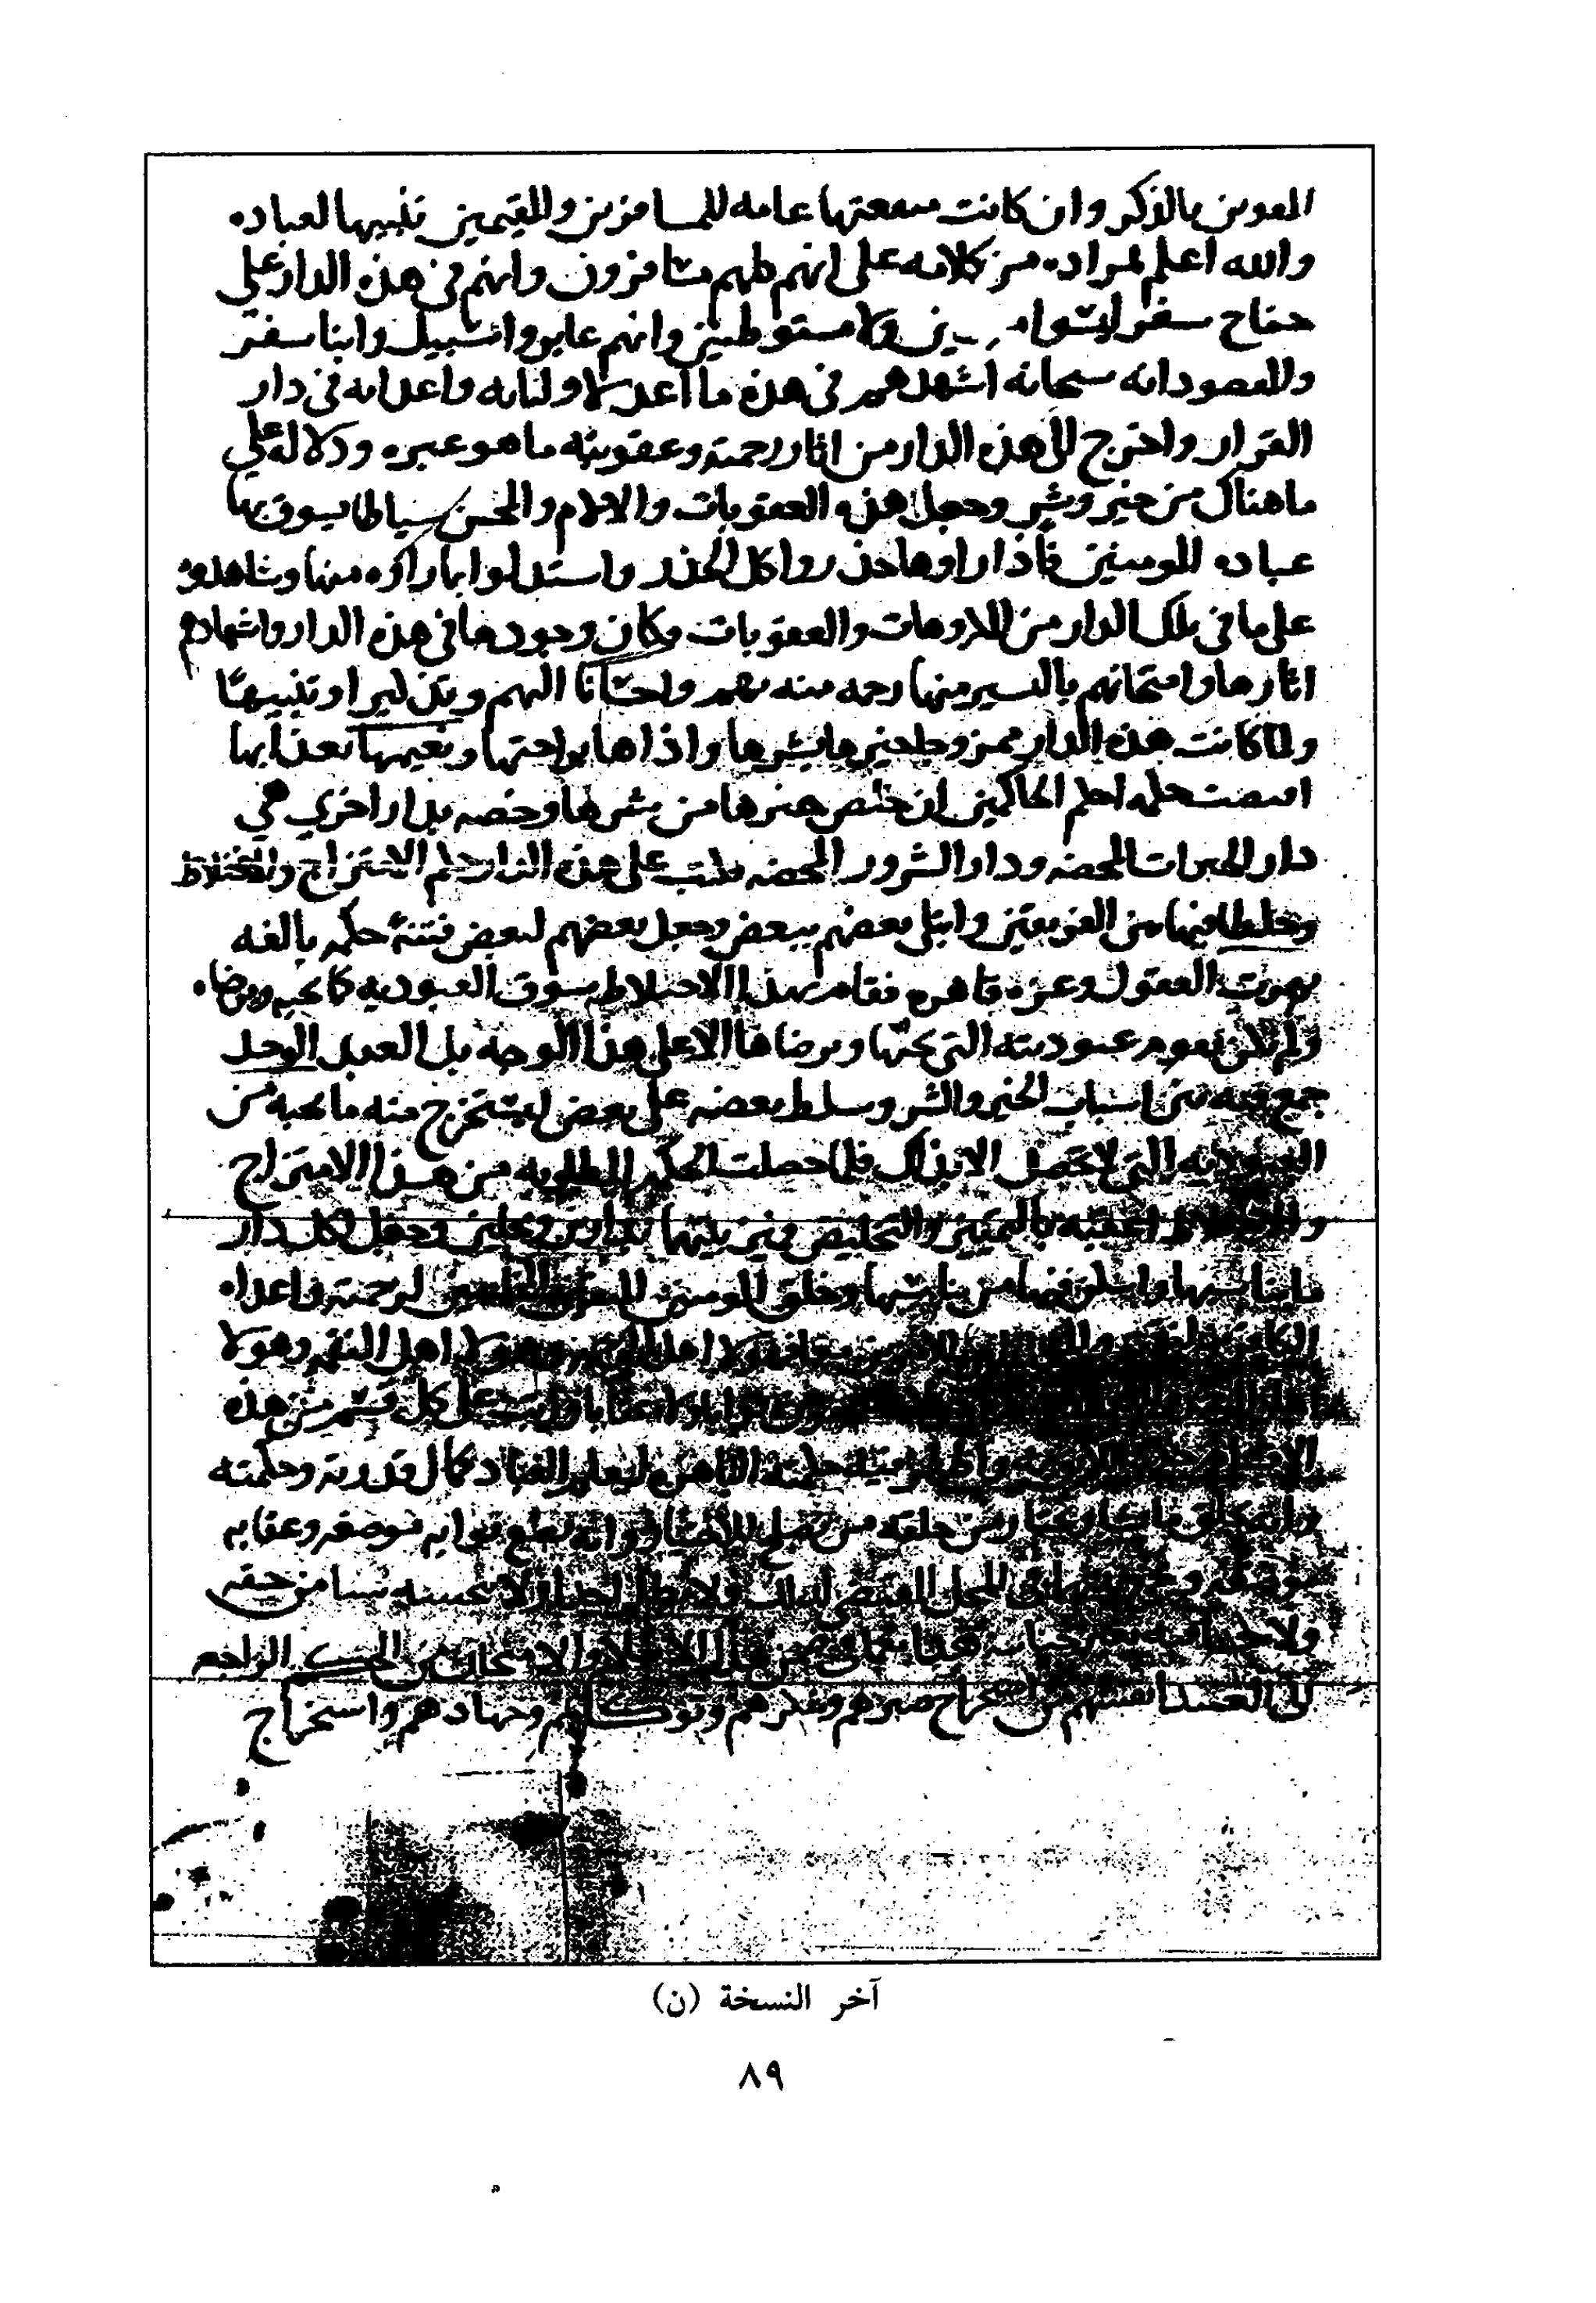 المقوين بالذكر وان كانت منفعتها عامه للمسافرين والمقيمين تنبيها لعباده
والله اعلم بمراده من كلامه على انهم كلهم مسافرون وانهم في هذه الدار على
جناح سفر ليسوا مقيمين ولا مستوطنين وانهم عابروا سبيل وابنا سفر
والمقصود انه سبحانه اشهدهم في هذه ما اعد لاوليائه واعدائه في دار
القرار واخرج الى هذه الدار من اثار رحمته وعقوبته ما هو عبره ودلاله على
ما هناك من خير وشر وجعل هذه العقوبات والالام والمحن سياطا يسوق بها
عباده المومنين فاذا راوها حذروا كل الحذر واستدلوا بما راوه منها وشاهدوه
على ما في تلك الدار من المكروهات والعقوبات وكان وجودها في هذه الدار واشهادهم
اثارها وامتحانهم باليسير منها رحمه منه بهم واحسانا اليهم وتذكيرا وتنبيها
ولما كانت هذه الدار ممزوجا خيرها بشرها واذاها براحتها ونعيمها بعذابها
اقتضت حكمه احكم الحاكمين ان خلص خيرها من شرها وخصه بدار اخري هي
دار الخيرات المحضه ودار الشرور المحضه فكتب على هذه الدار حكم الامتزاج والاختلاط
وخلط فيها من الفريقين وابتلى بعضهم ببعض وجعل بعضهم لبعض فتنة حكمه بالغه
بهرت العقول وعزه قاهره فقام بهذا الاختلاط سوق العبوديه كما يحبه ويرضاه
ولم تكن تقوم عبوديته التي يحبها ويرضاها الا على هذا الوجه بل العبد الواحد
جمع فيه بين اسباب الخير والشر وسلط بعضه على بعض ليستخرج منه ما يحبه من
العبوديه التي لا تحصل الا بذلك فلما حصلت الحكمه المطلوبه من هذا الامتزاج
والاختلاط اعقبه بالتمييز والتخليص فميز بينهما بدارين ومحلين وجعل لكل دار
ما يناسبها واسكن فيها من يناسبها وخلق المومنين المتقين المخلصين لرحمته واعداه
الكافرين لنقمته والمخلطين للامرين فهاولا اهل الرحمه وهولا اهل النقمه وهولا
كل قسم من هذه
حكمته الباهره ليعلم العباد كمال قدرته وحكمته
وانه يخلق ما يشا ويختار من خلقه من يصلح للاختيار وانه يضع ثوابه موضعه وعقابه
موضعه ويجمع بينهما في المحل المقتضي لذلك ولا يظلم احدا ولا يبخسه شيا من حقه
ولا يعاقبه بغير جنايته هذا مع ما في ضمن هذا الابتلا والامتحان من الحكم الراجعه
الى العبيد انفسهم من استخراج صبرهم وشكرهم وتوكلهم وجهادهم واستخراج
آخر النسخة (ن)
٨٩